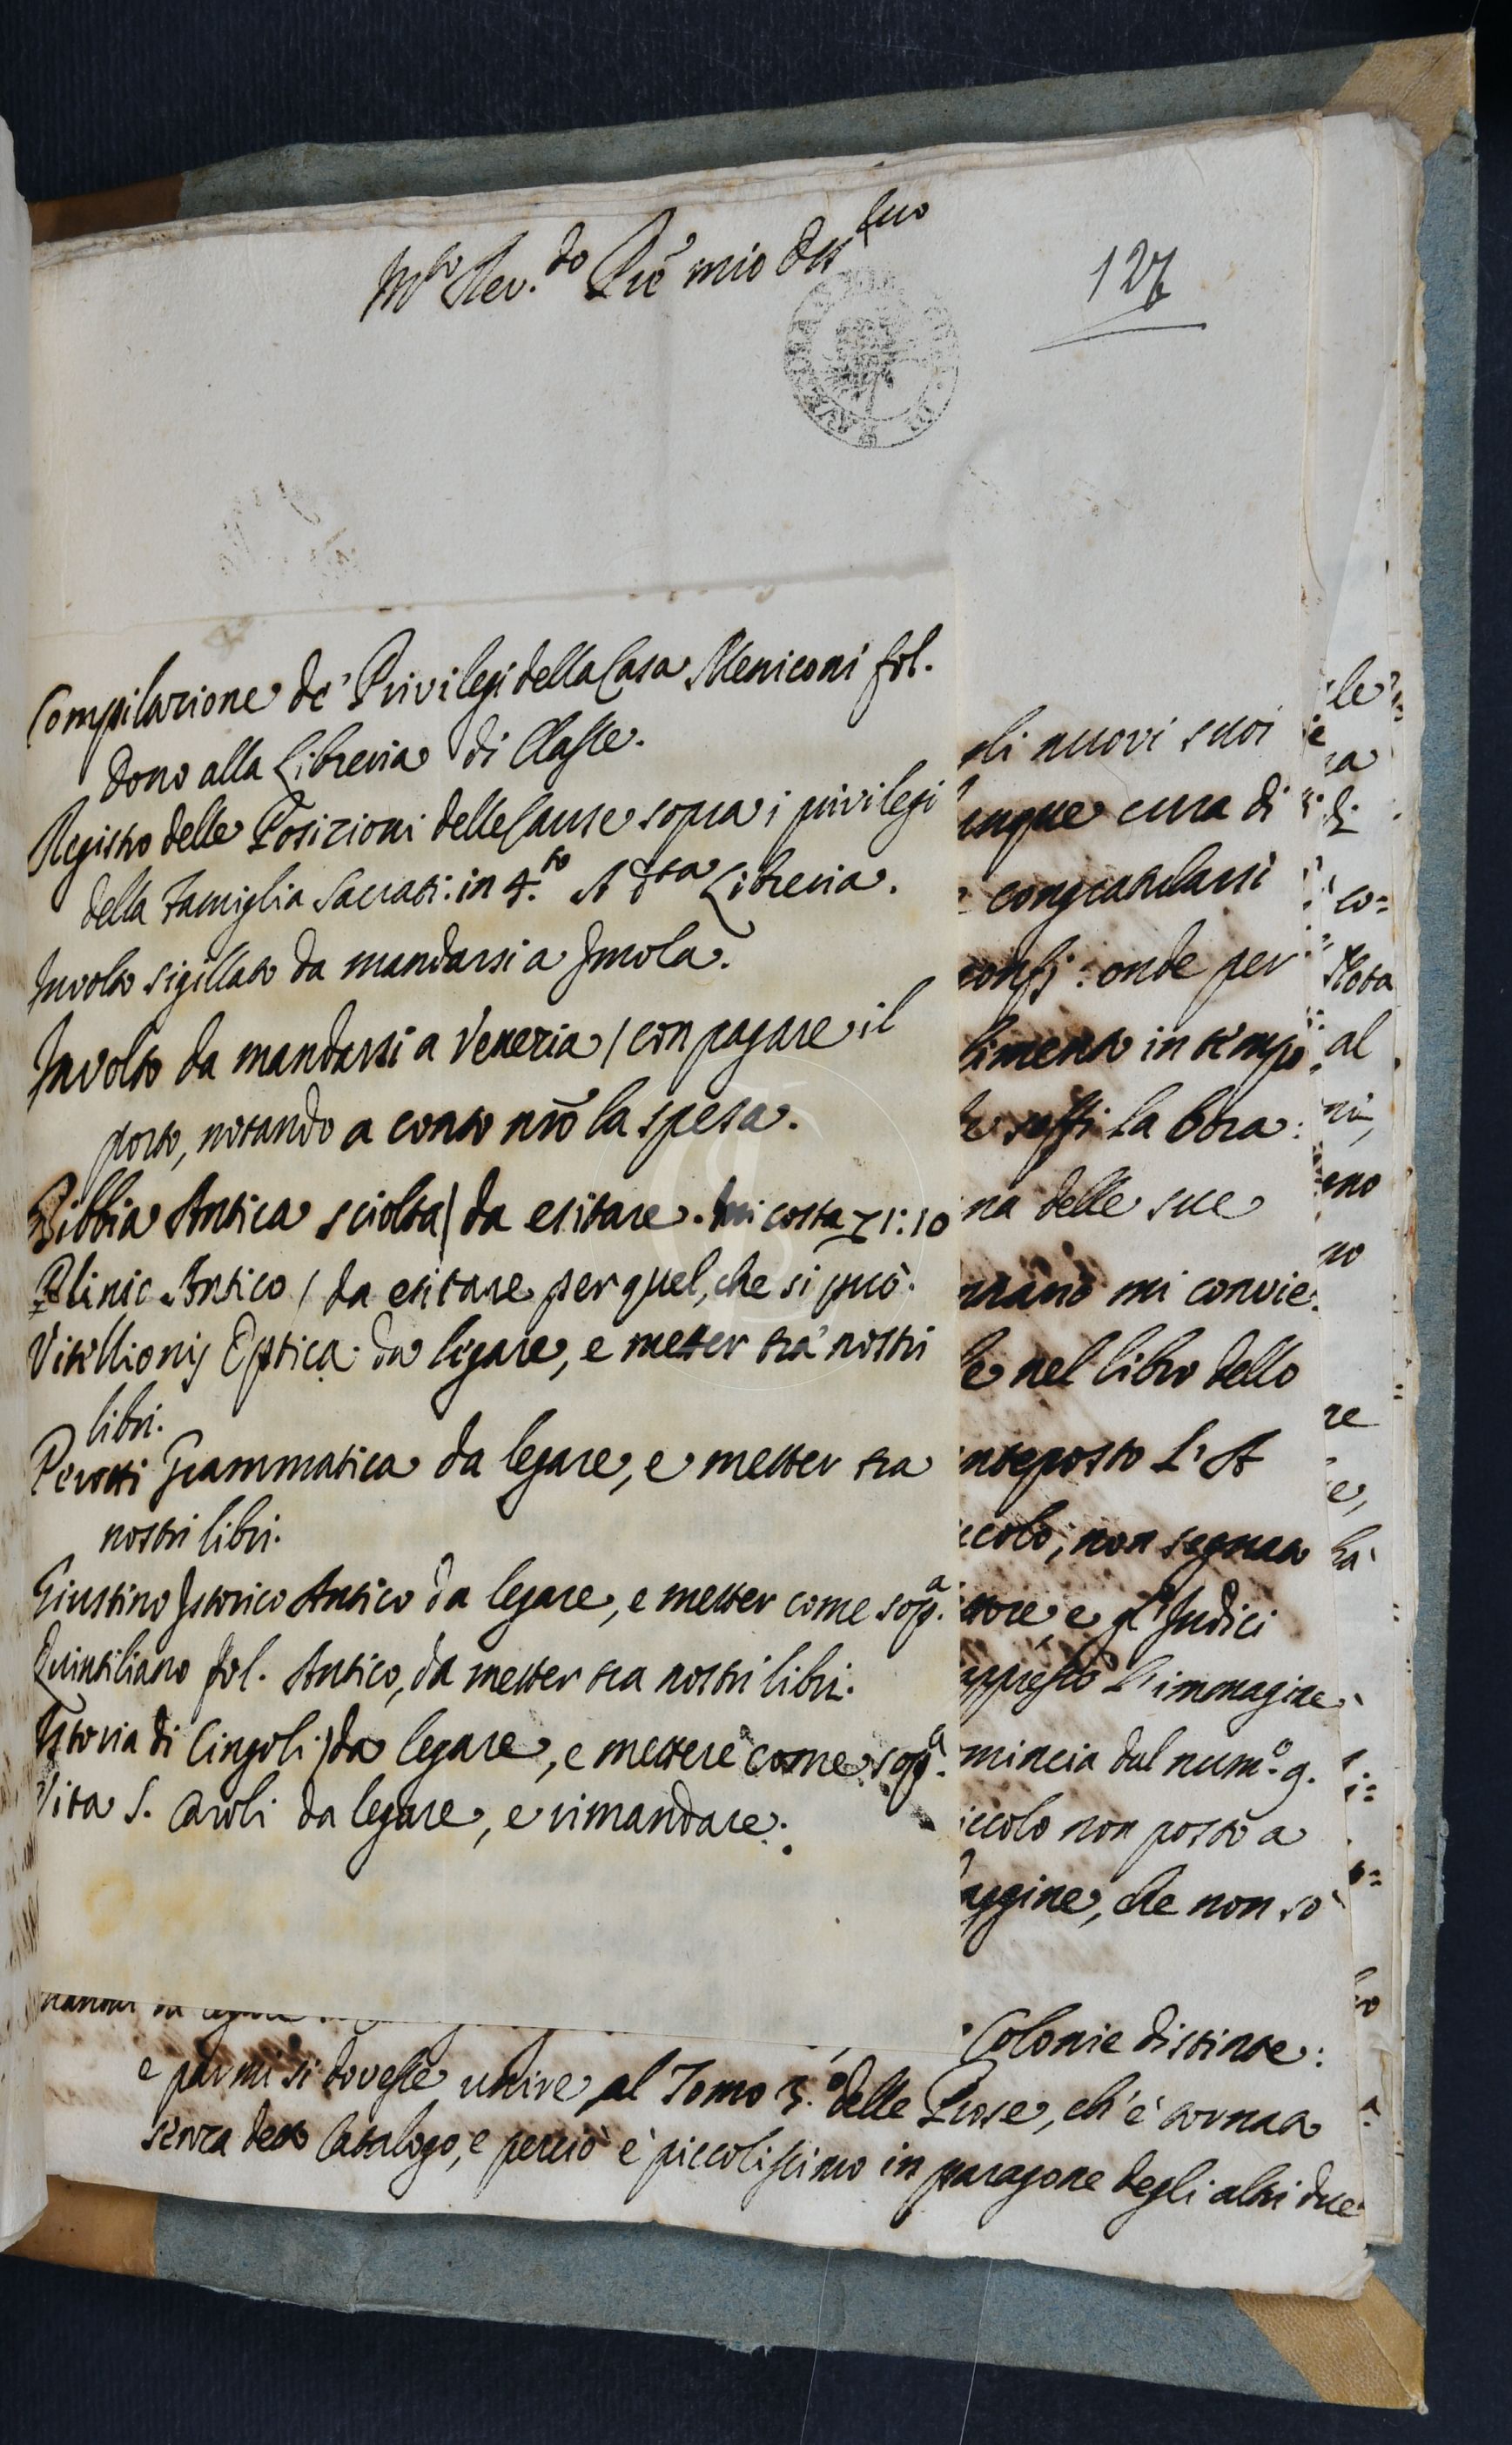 M.to Rev.do Prē mio
127
Compilazione de' Privilegi della Casa Meniconi fol.
dono alla Libreria di Classe.
Registro delle Posizioni delle Cause sopra i privilegi
della Famiglia Sacrati: in 4.to A d.ta Libreria.
Involto sigillato da mandarsi a Imola.
Involto da mandarsi a Venezia / con pagare il
porto, notando a conto nrō la spesa.
Bibbia Antica sciolta / da esitare. mi costa 1:10
Plinio Antico / da esitare per quel, che si può.
Vitellionis Optica da legare, e metter tra' nostri
libri.
Perotti Grammatica da legare, e metter tra
nostri libri.
Giustino Istorico Antico da legare, e metter come sop.a
Quintiliano fol. Antico, da metter tra nostri libri.
Istoria di Cingoli / da legare, e mettere come sop.a
Vita S. Caroli da legare, e rimandare.
di nuovi suoi
unque cura di
congratularsi
onde per
limento in tempo
la bora:
na delle sue
mi convie
nel libro dello
nteposto L'A
ccolo, non segnato
tore, e gl'Indici
appresso L'immagine
mincia dal num.o 9.
iccolo non posto a
aggine, che non so
Colonie distinte:
e parmi si dovesse unire al Tomo 3.o delle Prose, ch'è tornato
senza detto Catalogo, e perciò è piccolissimo in paragone degli altri due
le
di
co=
Nota
al
no
re
ha